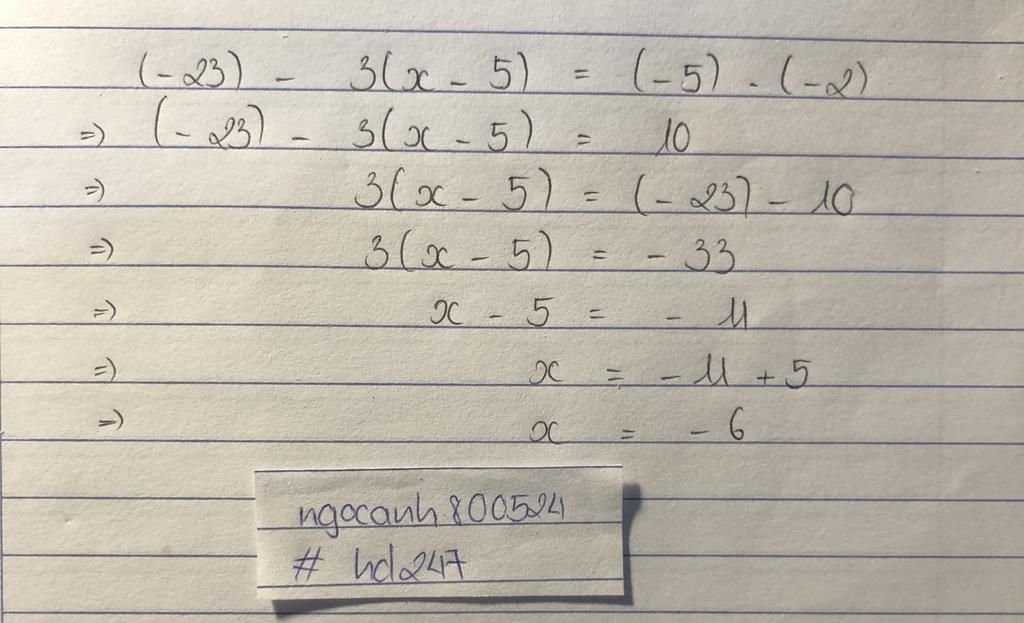 (-23) - 3(x - 5) = (-5) . (-2)
=) (-23) - 3(x - 5) = 10
=) 3(x - 5) = (-23) - 10
=) 3(x - 5) = - 33
=) x - 5 = - 11
=) x = - 11 + 5
=) x = - 6
ngocanh800524
# hd247